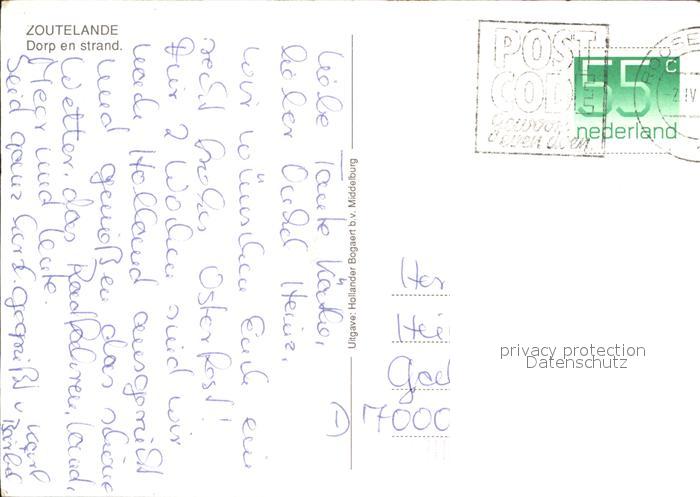 ZOUTELANDE
Dorp en strand.
Liebe Tante Käthe,
lieber Onkel Heinz,
wir wünschen Euch ein
recht frohes Osterfest!
Für 2 Wochen sind wir
nach Holland ausgerückt
und genießen das schöne
Wetter, das Radfahren, Land,
Meer und Leute.
Seid ganz herzl. gegrüßt v.
Uitgave: Hollander Bogaert b.v. Middelburg
POST
CODE
gewoon
even doen
55 c
nederland
ROOSE
2 IV
Her
Hei
D 7000
privacy protection
Datenschutz